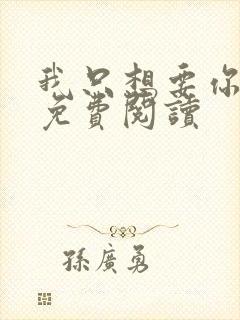 我只想要你
免費閱讀
孫廣勇